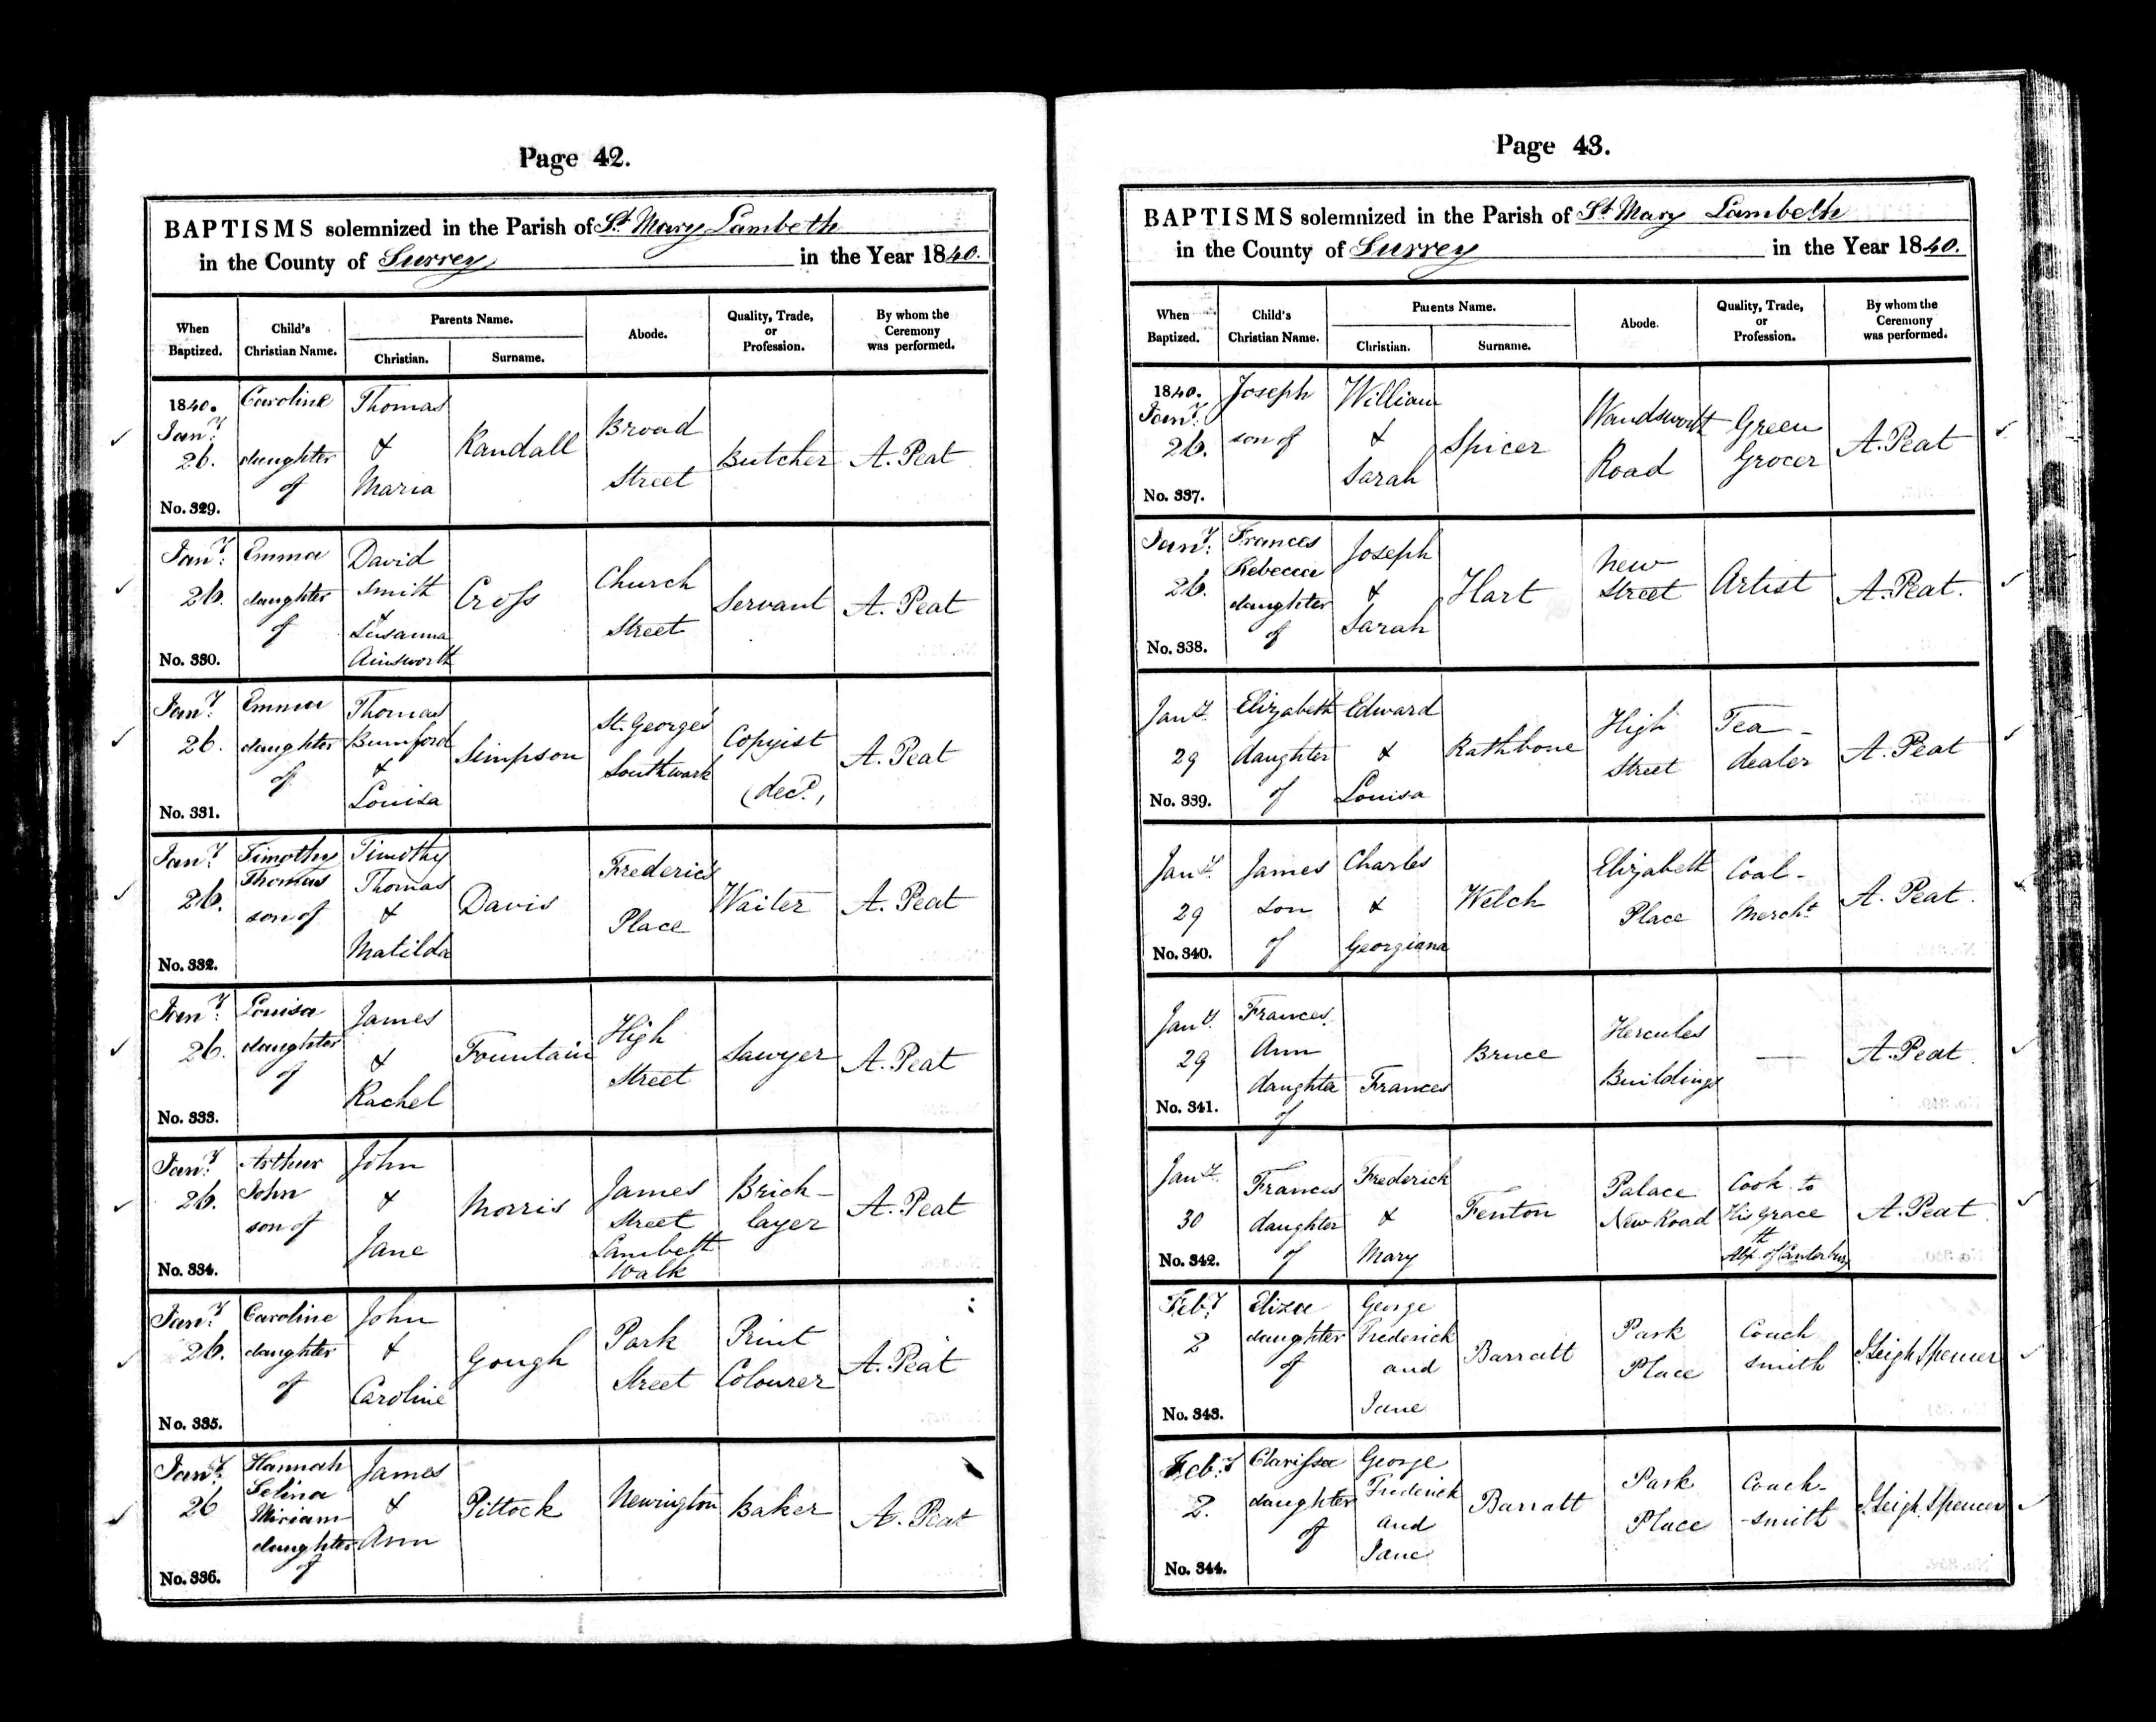 Page 42.
BAPTISMS solemnized in the Parish of St. Mary Lambeth
in the County of Surrey in the Year 1840.
When Baptized.
Child's Christian Name.
Parents Name.
Christian.
Surname.
Abode.
Quality, Trade, or Profession.
By whom the Ceremony was performed.
1840.
Jany.
26.
No. 329.
Caroline
daughter
of
Thomas
&
Maria
Randall
Broad
Street
Butcher
A. Peat
Jany.
26.
No. 330.
Emma
daughter
of
David
Smith
&
Susanna
Ainsworth
Cross
Church
Street
Servant
A. Peat
Jany.
26.
No. 331.
Emma
daughter
of
Thomas
Bumford
&
Louisa
Simpson
St. George's
Southwark
Copyist
(decd.)
A. Peat
Jany.
26.
No. 332.
Timothy
Thomas
son of
Timothy
Thomas
&
Matilda
Davis
Frederics
Place
Waiter
A. Peat
Jany.
26.
No. 333.
Louisa
daughter
of
James
&
Rachel
Fountain
High
Street
Sawyer
A. Peat
Jany.
26.
No. 334.
Arthur
John
son of
John
&
Jane
Morris
James
Street
Lambeth
Walk
Brick-
layer
A. Peat
Jany.
26.
No. 335.
Caroline
daughter
of
John
&
Caroline
Gough
Park
Street
Print
Colourer
A. Peat
Jany.
26
No. 336.
Hannah
Selina
Miriam
daughter
of
James
&
Ann
Pittock
Newington
Baker
A. Peat
Page 43.
BAPTISMS solemnized in the Parish of St. Mary Lambeth
in the County of Surrey in the Year 1840.
When Baptized.
Child's Christian Name.
Parents Name.
Christian.
Surname.
Abode.
Quality, Trade, or Profession.
By whom the Ceremony was performed.
1840.
Jany.
26.
No. 337.
Joseph
son of
William
&
Sarah
Spicer
Wandsworth
Road
Green
Grocer
A. Peat
Jany.
26.
No. 338.
Frances
Rebecca
daughter
of
Joseph
&
Sarah
Hart
New
Street
Artist
A. Peat.
Jany.
29
No. 339.
Elizabeth
daughter
of
Edward
&
Louisa
Rathbone
High
Street
Tea-
dealer
A. Peat
Jany.
29
No. 340.
James
son
of
Charles
&
Georgiana
Welch
Elizabeth
Place
Coal-
Mercht.
A. Peat.
Jany.
29
No. 341.
Frances
Ann
daughter
of
Frances
Bruce
Hercules
Buildings
—
A. Peat.
Jany.
30
No. 342.
Frances
daughter
of
Frederick
&
Mary
Fenton
Palace
New Road
Cook to
His Grace
th
Abp. of Canterbury
A. Peat
Feby.
2
No. 343.
Eliza
daughter
of
George
Frederick
and
Jane
Barratt
Park
Place
Coach
smith
J. Leigh Spencer
Feby.
2.
No. 344.
Clarissa
daughter
of
George
Frederick
and
Jane
Barratt
Park
Place
Coach-
smith
J. Leigh Spencer